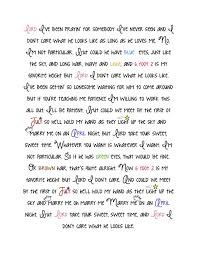 Lord I've been prayin' for somebody I've never seen and I
don't care what he looks like as long as he loves me. No,
I'm not particular. But could he have blue eyes, just like
the sky, and long wavy hair and 6 foot 2 is my
favorite height but Lord I don't care what he looks like.
I've been settin' so lonesome waiting for him to come around
but if you're teaching me patience I'm willing to work this
all out. I'll be just fine. But could we meet by the first of
July so he'll hold my hand as they light up the sky and
marry me on an April night. But Lord take your sweet,
sweet time. Whatever you want is whatever I want. I'm
not particular. So if he has green eyes, that would be fine.
Or brown what, that's quite alright. Now 6 foot 2 is my
favorite height. But Lord I don't care. But could we meet
by the first of July so he'll hold my hand as they light up the
sky and marry me on my marry me on an April
night. But Lord take your sweet, sweet time, and Lord I
don't care what he looks like.